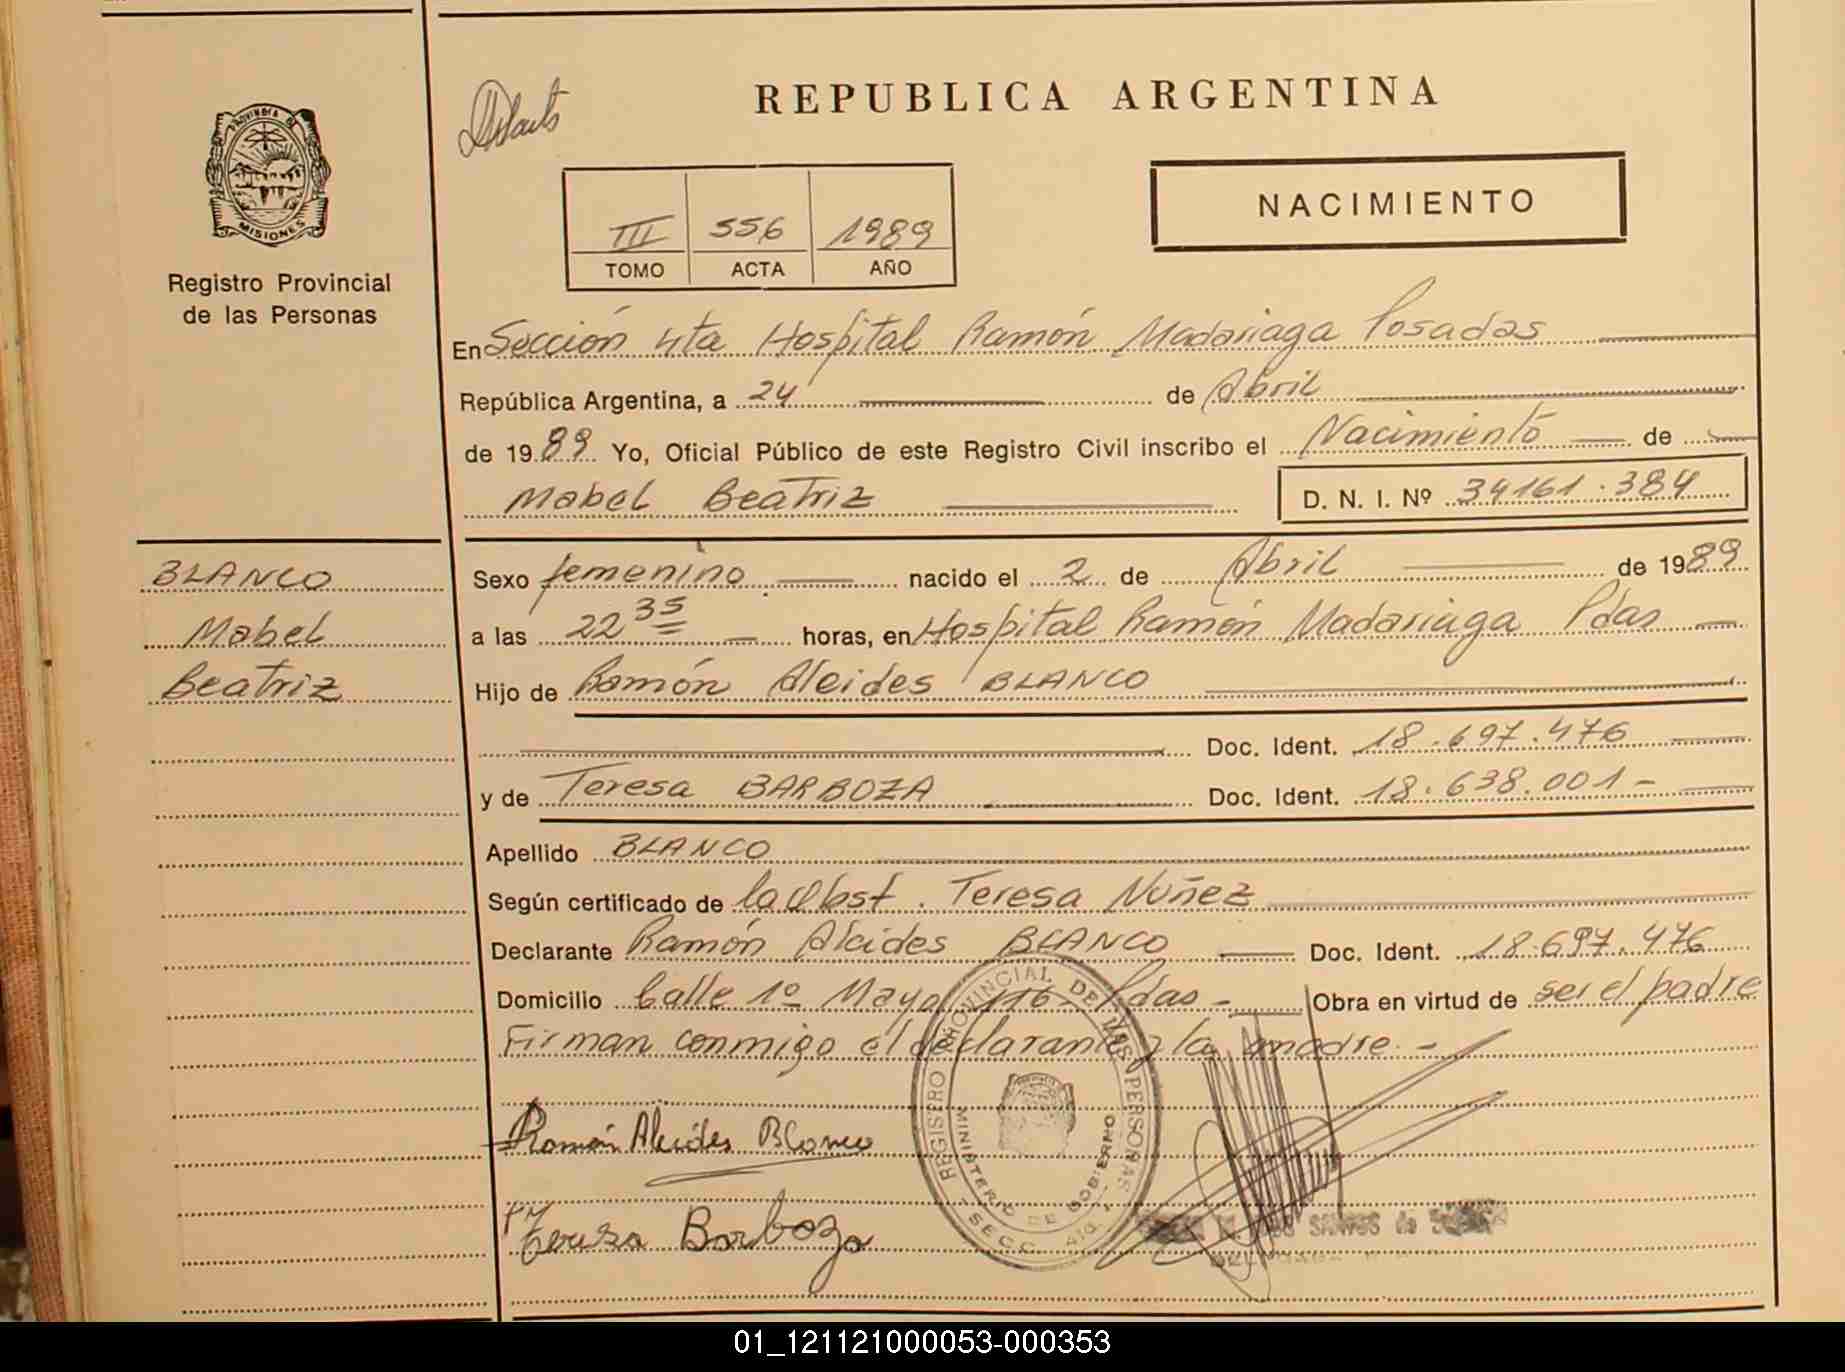 REPUBLICA ARGENTINA
PROVINCIA DE
MISIONES
Registro Provincial
de las Personas
III 556 1989
TOMO ACTA AÑO
NACIMIENTO
En Sección 4ta Hospital Ramón Madariaga Posadas
República Argentina, a 24 de Abril
de 1989 Yo, Oficial Público de este Registro Civil inscribo el Nacimiento de
Mabel Beatriz D. N. I. Nº 34161.384
BLANCO
Mabel
Beatriz
Sexo femenino nacido el 2 de Abril de 1989
a las 22 35 horas, en Hospital Ramón Madariaga Pdas
Hijo de Ramón Alcides BLANCO
Doc. Ident. 18.697.476
y de Teresa BARBOZA Doc. Ident. 18.638.001-
Apellido BLANCO
Según certificado de la Obst. Teresa Nuñez
Declarante Ramón Alcides BLANCO Doc. Ident. 18.697.476
Domicilio Calle 1º Mayo 116, Pdas - Obra en virtud de ser el padre
Firman conmigo el declarante y la madre -
Ramón Alcides Blanco
Teresa Barboza
REGISTRO PROVINCIAL DE LAS PERSONAS
MINISTERIO DE GOBIERNO
SECC. 4ta.
SANTOS de
01_121121000053-000353